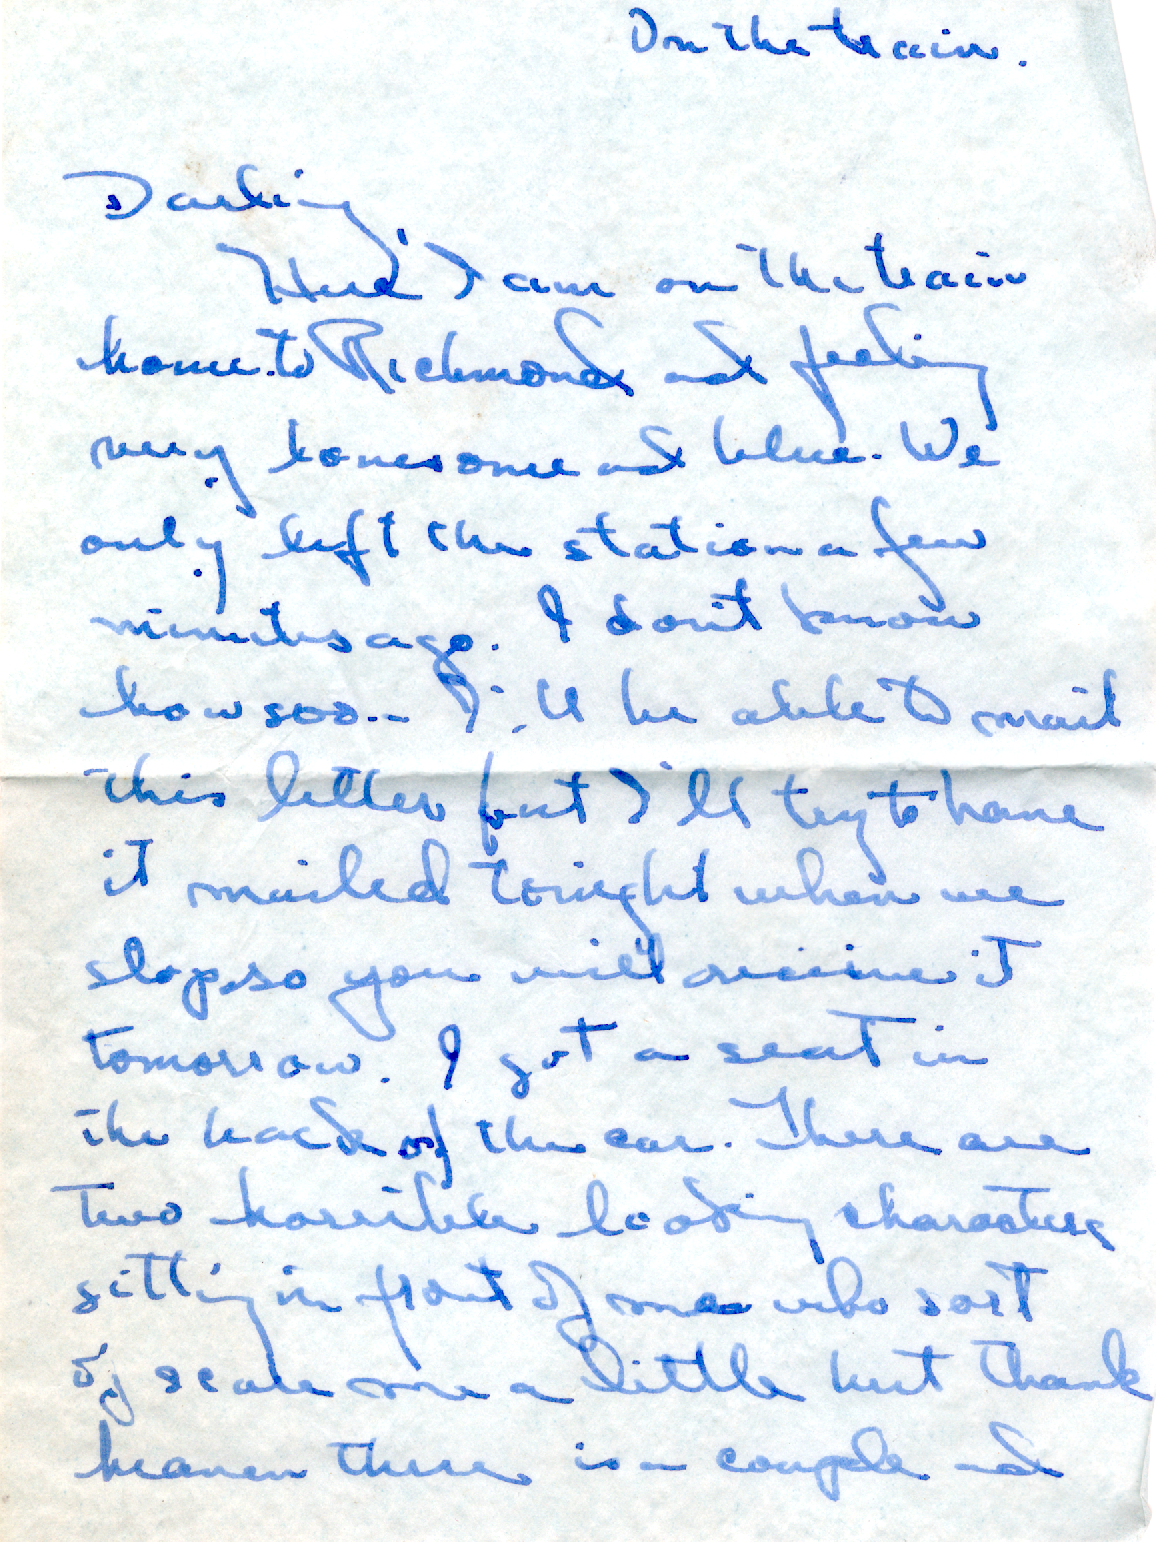 On the train.
Darling,
Here I am on the train
home to Richmond and feeling
very lonesome and blue. We
only left the station a few
minutes ago. I don't know
how soon I'll be able to mail
this letter but I'll try to have
it mailed tonight when we
stop, so you will receive it
tomorrow. I got a seat in
the back of the car. There are
two horrible looking characters
sitting in front of me who sort
of scare me a little but thank
heaven there is a couple and